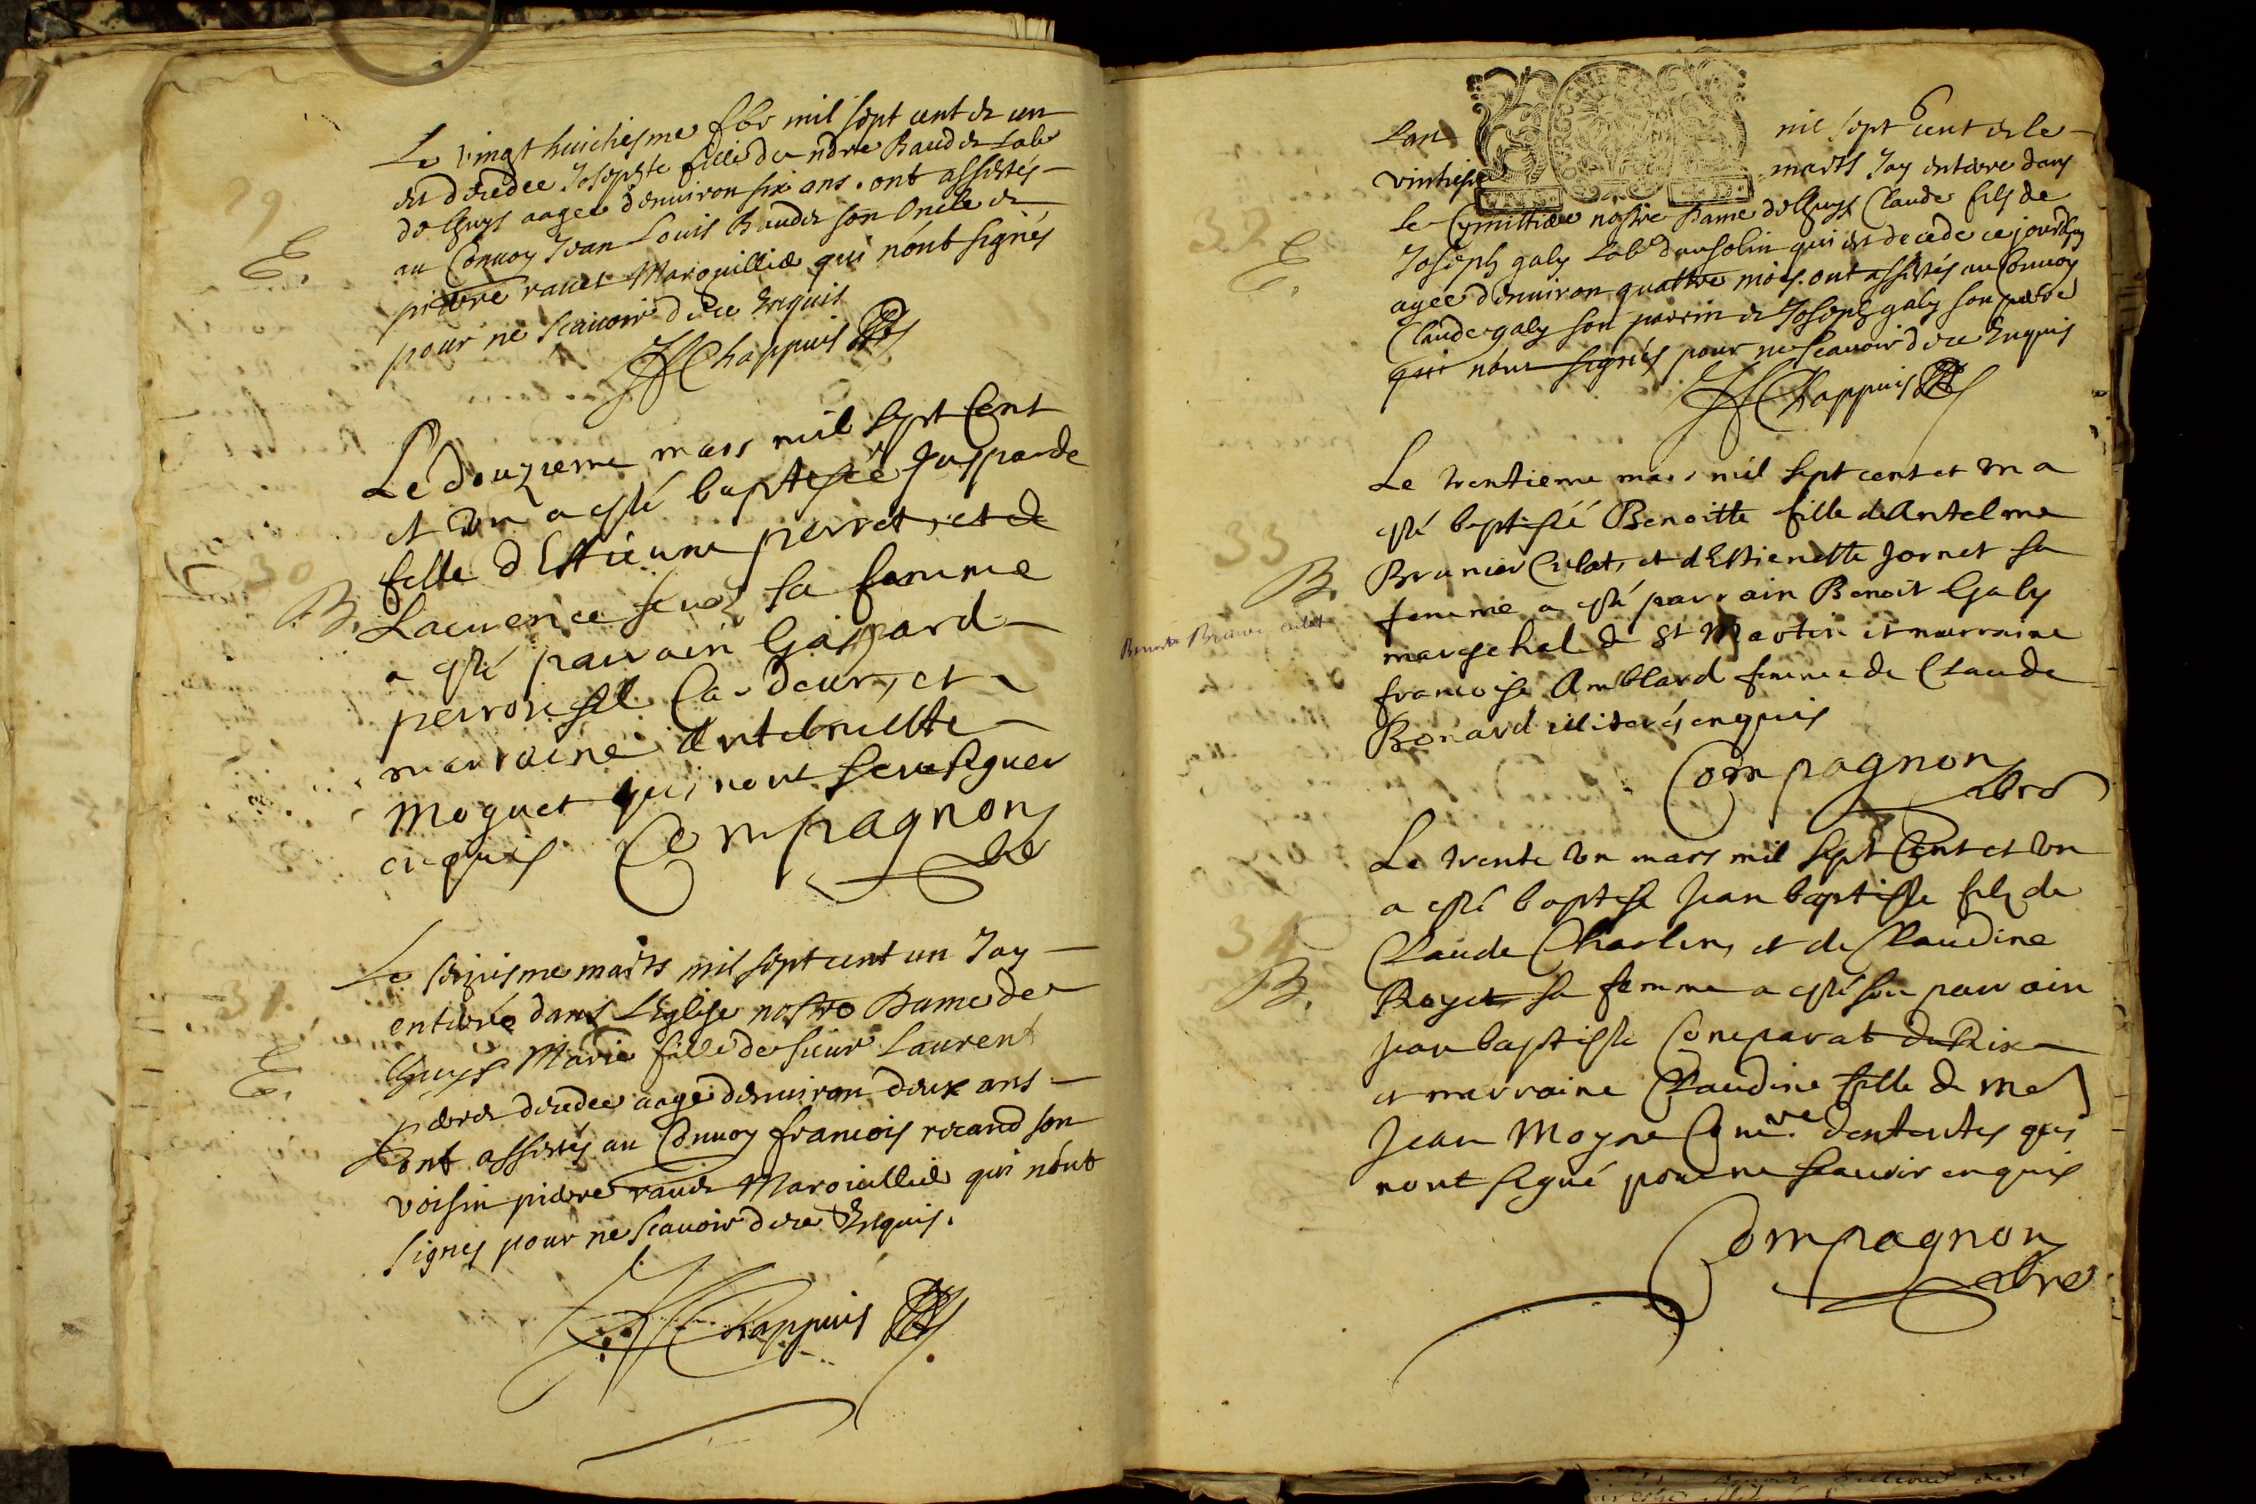 29
E.
Le vingt huictiesme fbr mil sept cent et un
est décédée Josephte fille de André Baudet Lab
de Lhuys aagée d'environ six ans. ont assistés
au Convoy Jean Louis Baudet son Oncle et
pierre ravet Marguillié qui n'ont signés
pour ne scavoir de ce Enquis
Chappuis
30
B.
Le douzieme mars mil sept Cent
et Un a esté baptisée Gasparde
fille d'Estienne perret, et de
Laurence sa femme
a esté parrain Gaspard
Cardeur, et
marraine Anthelmette
Moguet qui n'ont sceu signer
enquis Compagnon
31.
E.
Le seiziesme marts mil sept cent un Jay
enterré dans L'Eglise nostre Dame de
Lhuys Marie fille de sieur Laurent
décédée aagé d'environ deux ans
ont assistés au Convoy francois recand son
voisin pierre ravet Marguillié qui n'ont
signes pour ne scavoir de ce Enquis.
Chappuis
32
E.
Lan mil sept Cent et le
vintiesme marts Jay enterré dans
Le Cymittiere nostre Dame de Lhuys Claude fils de
Joseph galy Lab d'ansolin qui est decedé ce jourdhuy
agée d'environ quattre mois. ont assistés au Convoy
Claude galy son parrin et Joseph galy son pere
qui n'ont signés pour ne scavoir de ce Enquis
Chappuis
33
B.
Le trentieme mars mil sept cent et Un a
esté baptisée Benoitte fille de Antelme
Brunier Culat, et d'Estienette Jornet sa
femme a esté parrain Benoit Galy
mareschal de St Martin et marraine
francoise Amblard femme de Claude
Bonard illiterés enquis
Compagnon
34
B.
Le trente Un mars mil sept Cent et Un
a esté baptisé Jean baptiste fils de
Claude Charlin, et de Claudine
Royet sa femme a esté son parrain
Jean baptiste Comparat du Rix
et marraine Claudine fille de Me
Jean Moyne qui
n'ont signé pour ne scavoir enquis
Compagnon